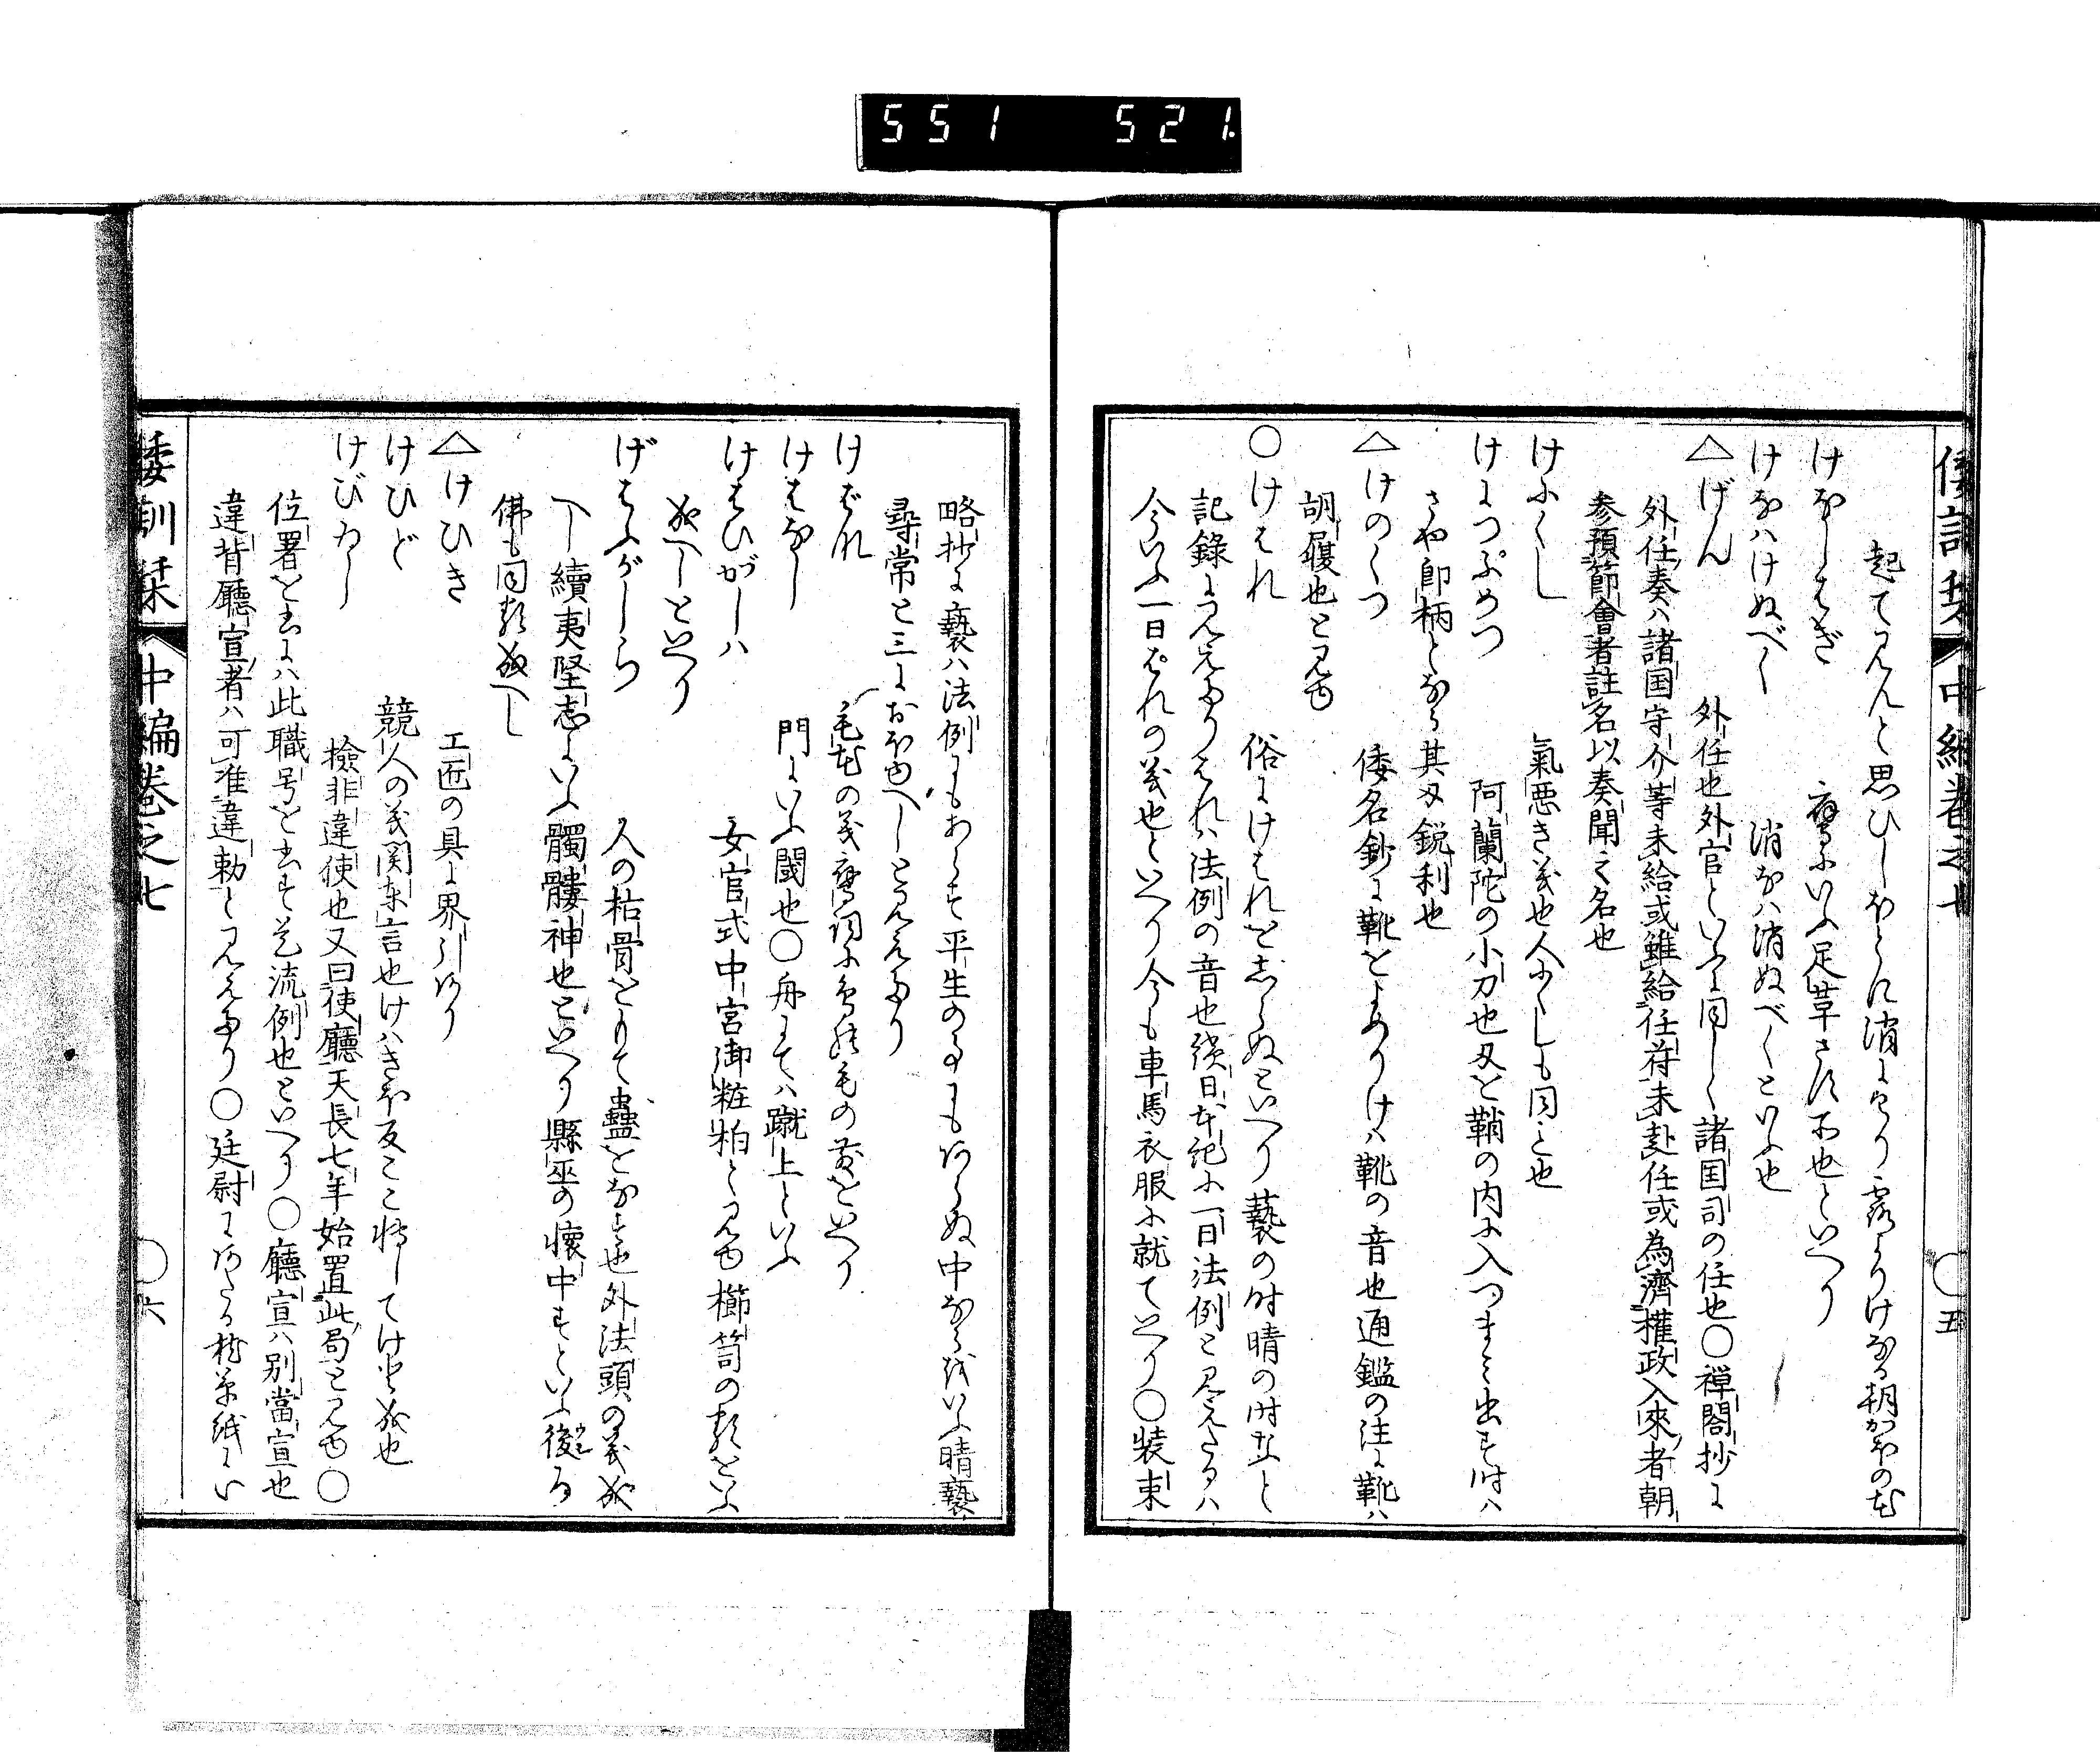 551 521.
倭訓栞 中編卷之七 ○五
起て見んと思ひしほとに消にけり露よりけなる朝かほの花
けなしはぎ 鷹にいふ足革さす所也といへり
けなはけぬべく 消なは消ぬべくといふ也
△げにん 外任也外官といふに同しく諸国司の任也○禅閤抄に
外任奏ハ諸国守介等未給或雖給任符未赴任或為濟權政入來者朝
参預節會者註名以奏聞之名也
けにくし 氣悪き義也人にくしも同し也
けにつぷめつ 阿蘭陀の小刀也刄を鞘の内に入つまミ出す時ハ
さや即柄となる其刄鋭利也
△けのくつ 倭名鈔に靴をよめりけハ靴の音也通鑑の注に靴ハ
胡履也と見ゆ
○けはれ 俗にけはれをしらぬといへり褻の时晴の时なと
記録に見えたりはれハ法例の音也續日本紀に一日法例と見えたるハ
今いふ一日はれの義也といへり今も車馬衣服に就ていへり○装束
略抄に褻ハ法例にもあらす平生の事にもあらぬ中なるをいふ晴褻
尋常と三におほゆへしと見えたり
けばれ 毛花の義鷹詞に鳥の毛の散をいへり
けはなし 門にいふ閾也○舟にてハ蹴上といふ
けはひがしハ 女官式中宮御粧粕と見ゆ櫛笥の類をいふ
成へしといへり
げはふがしら 人の枯骨をもて蠱をなす也外法頭の義成
へし續夷堅志にいふ髑髏神也といへり縣巫の懐中すといふ後ろ
佛も同類成へし
△けひき 工匠の具に界引あり
けひど 競人の義関東言也けハきほ反こ轉してけ也
けびゐし 檢非違使也又曰使廳天長七年始置此局と見ゆ○
位署を書にハ此職号を書す是流例也といへり○廳宣ハ別當宣也
違背廳宣者ハ可准違勅と見えたり○廷尉にあたる檀紙にい
倭訓栞 中編卷之七 ○六